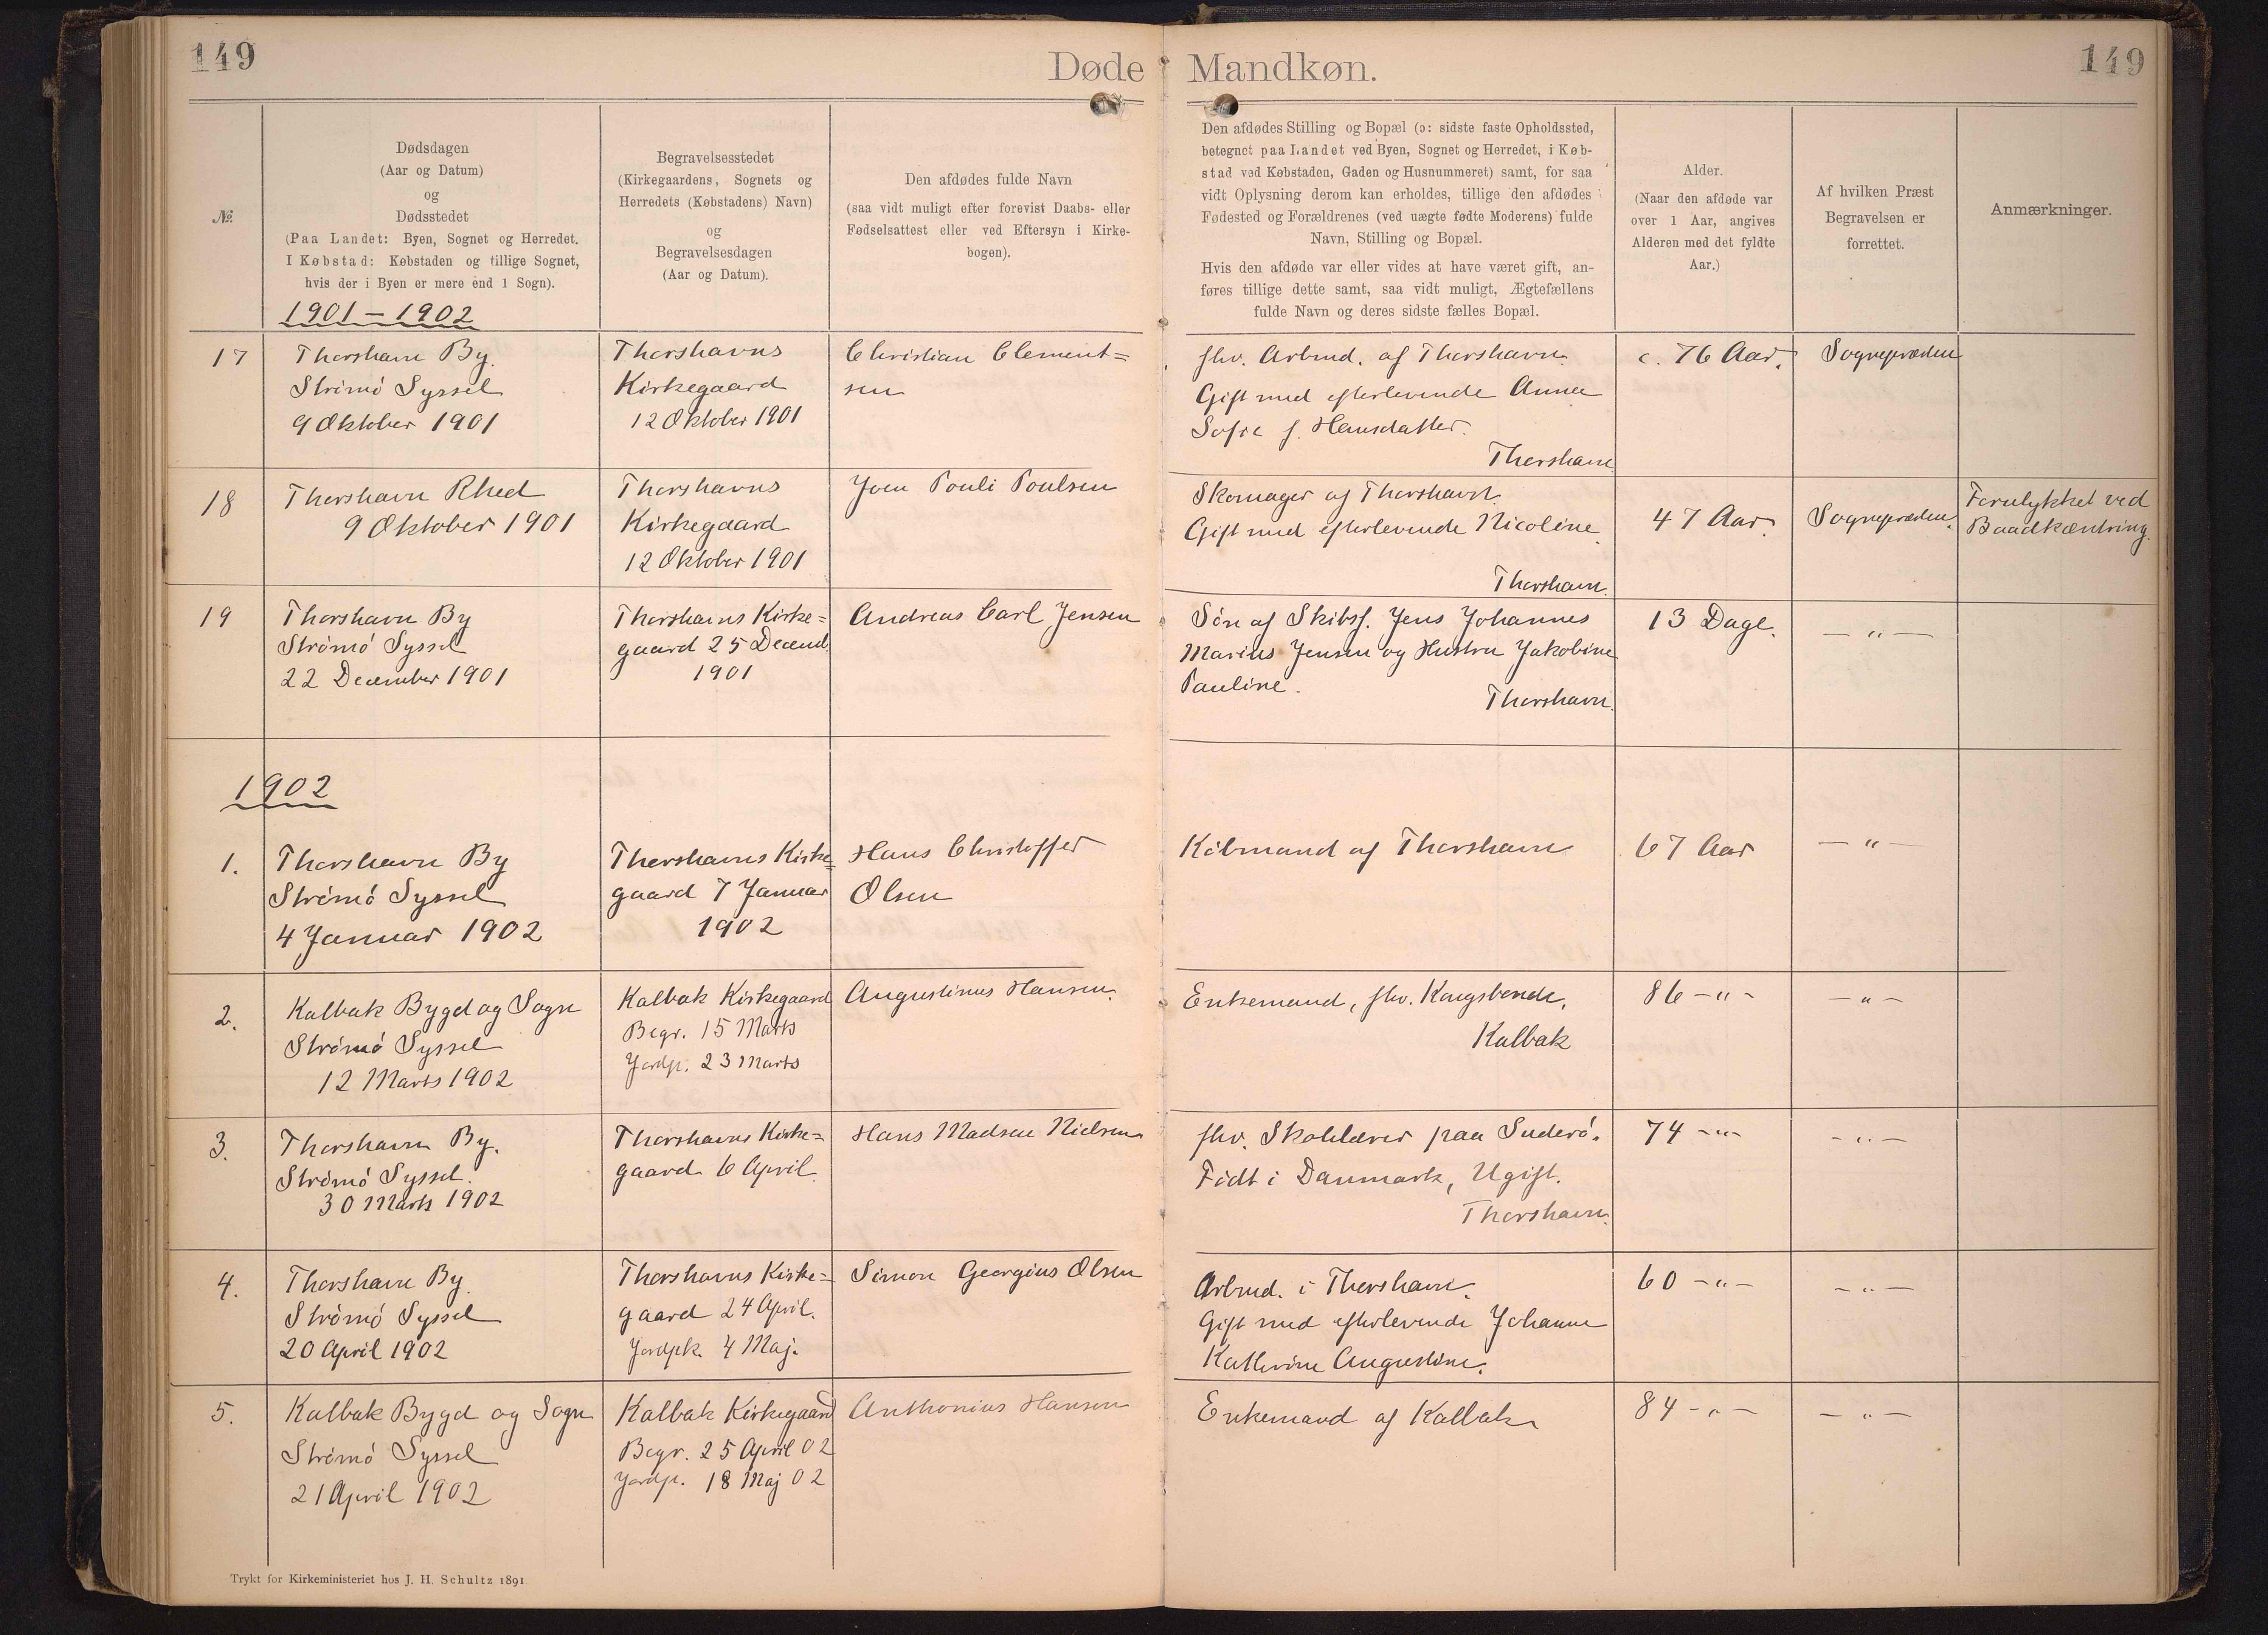 149
Døde Mandkøn.
149
№
Dødsdagen
(Aar og Datum)
og
Dødsstedet
(Paa Landet: Byen, Sognet og Herredet.
I Købstad: Købstaden og tillige Sognet,
hvis der i Byen er mere end 1 Sogn).
1901 - 1902
Begravelsesstedet
(Kirkegaardens, Sognets og
Herredets (Købstadens) Navn)
og
Begravelsesdagen
(Aar og Datum).
Den afdødes fulde Navn
(saa vidt muligt efter forevist Daabs- eller
Fødselsattest eller ved Eftersyn i Kirke-
bogen).
Den afdødes Stilling og Bopæl (ɔ: sidste faste Opholdssted,
betegnet paa Landet ved Byen, Sognet og Herredet, i Køb-
stad ved Købstaden, Gaden og Husnummeret) samt, for saa
vidt Oplysning derom kan erholdes, tillige den afdødes
Fødested og Forældrenes (ved uægte fødte Moderens) fulde
Navn, Stilling og Bopæl.
Hvis den afdøde var eller vides at have været gift, an-
føres tillige dette samt, saa vidt muligt, Ægtefællens
fulde Navn og deres sidste fælles Bopæl.
Alder.
(Naar den afdøde var
over 1 Aar, angives
Alderen med det fyldte
Aar.)
Af hvilken Præst
Begravelsen er
forrettet.
Anmærkninger.
17
Thorshavn By.
Strömö Syssel
9 Oktober 1901
Thorshavns
Kirkegaard
12 Oktober 1901
Christian Clement=
sen
fhv. Arbmd. af Thorshavn.
Gift med efterlevende Anna
Sofie f. Hansdatter.
Thorshavn
c. 76 Aar.
Sognepræsten
18
Thorshavn Rhed
9 Oktober 1901
Thorshavns
Kirkegaard
12 Oktober 1901
Joen Pouli Poulsen
Skomager af Thorshavn.
Gift med efterlevende Nicoline.
Thorshavn.
47 Aar.
Sognepræsten.
Forulykket ved
Baadkæntring.
19
Thorshavn By
Strömö Syssel
22 December 1901
Thorshavns Kirke=
gaard 25 Decemb.
1901
Andreas Carl Jensen
Sön af Skibsf. Jens Johannes
Marius Jensen og Hustru Jakobine
Pauline.
Thorshavn.
13 Dage.
— " —
1902
1.
Thorshavn By
Strömö Syssel
4 Januar 1902
Thorshavns Kirke=
gaard 7 Januar
1902
Hans Christoffer
Olsen
Köbmand af Thorshavn
67 Aar
— " —
2.
Kalbak Bygd og Sogn
Strömö Syssel
12 Marts 1902
Kalbak Kirkegaard
Begr. 15 Marts
Jordp. 23 Marts
Augustinus Hansen.
Enkemand, fhv. Kongsbonde,
Kalbak
86 — " —
— " —
3.
Thorshavn By.
Strömö Syssel.
30 Marts 1902
Thorshavns Kirke=
gaard 6 April.
Hans Madsen Nielsen
fhv. Skolelærer paa Suderö.
Födt i Danmark, Ugift.
Thorshavn.
74 — " —
— " —
4.
Thorshavn By.
Strömö Syssel
20 April 1902
Thorshavns Kirke=
gaard 24 April.
Jordpk. 4 Maj.
Simon Georgius Olsen
Arbmd. i Thorshavn.
Gift med efterlevende Johanne
Kathrine Augustine.
60 — " —
— " —
5.
Kalbak Bygd og Sogn
Strömö Syssel
21 April 1902
Kalbak Kirkegaard
Begr. 25 April 02
Jordp. 18 Maj 02
Anthonius Hansen
Enkemand af Kalbak
84 — " —
— " —
Trykt for Kirkeministeriet hos J. H. Schultz 1891